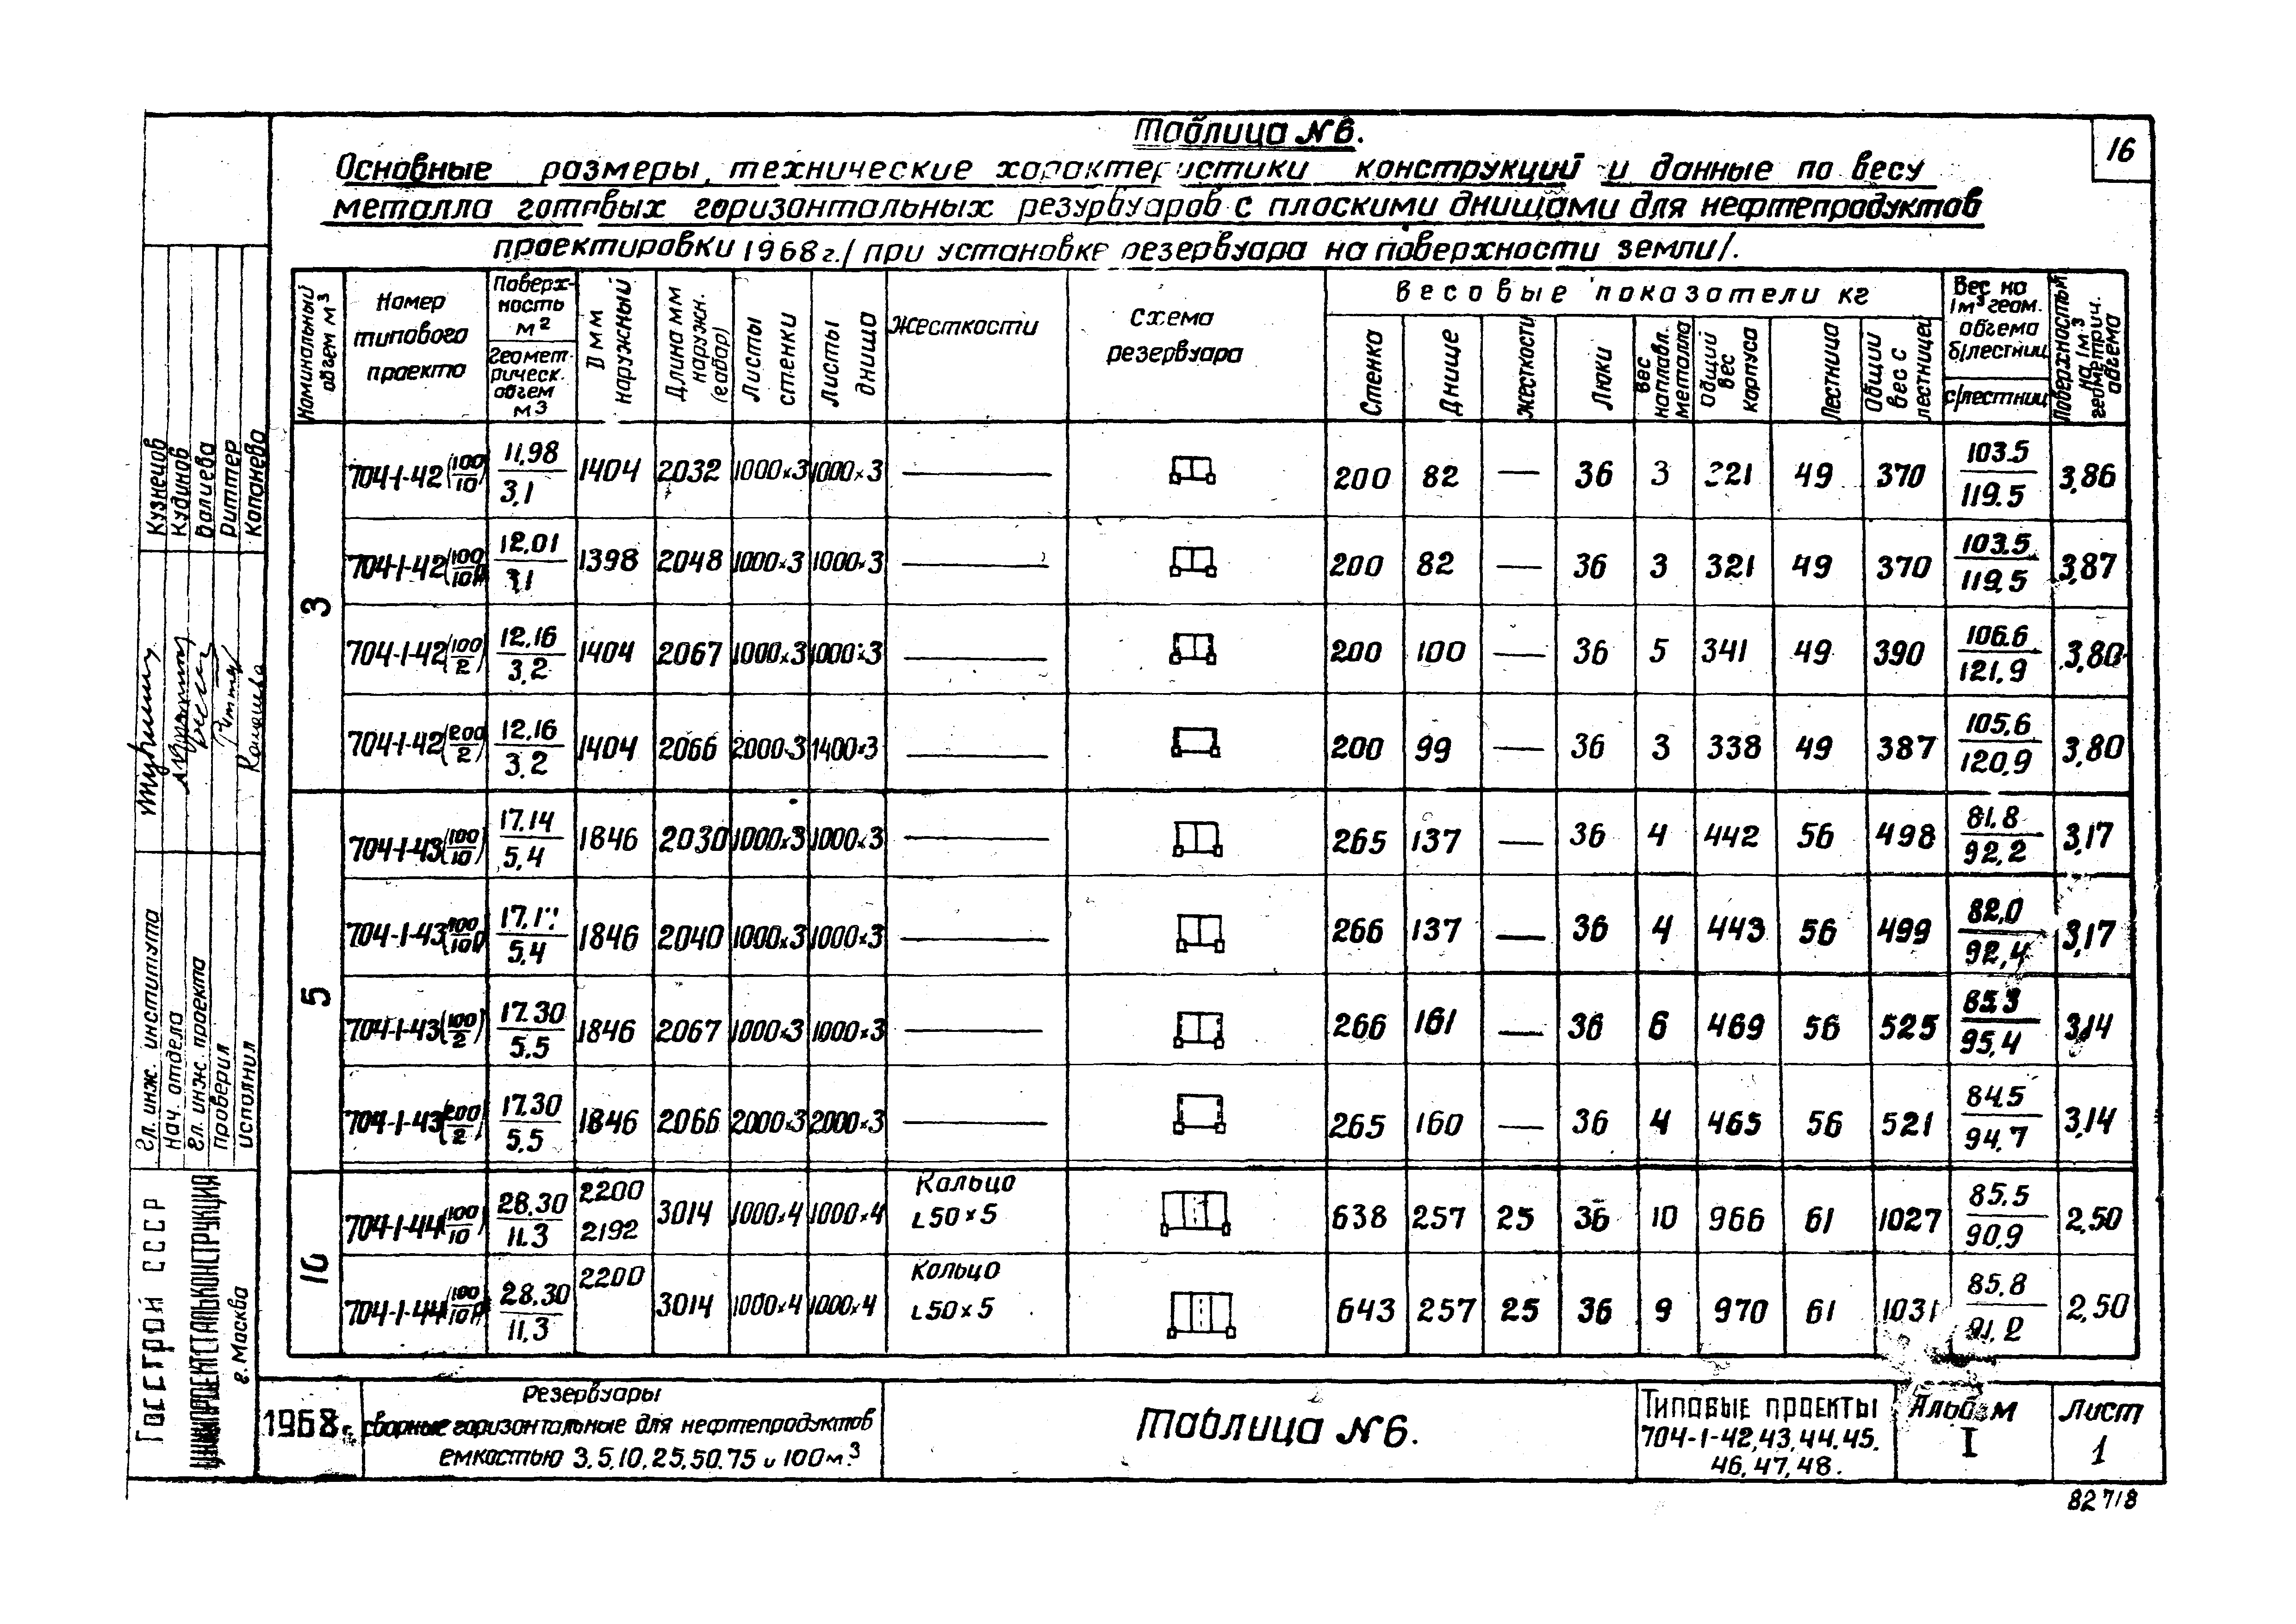 16
Таблица №6.
Основные размеры, технические характеристики конструкций и данные по весу
металла готовых горизонтальных резурвуаров с плоскими днищами для нефтепродуктов
проектировки 1968 г. / при установке резервуара на поверхности земли/.
Номинальный объем м³ | Номер типового проекта | Поверхность м² / Геометрическ. объем м3 | D мм наружный | Длина мм наружн. (габар) | Листы стенки | Листы днища | Жесткости | Схема резервуара | Весовые показатели кг | Вес на 1м³ геом. объема б/лестниц / с/лестниц | Поверхность на 1м³ геометрич. объема
Стенка | Днище | Жесткости | Люки | Вес наплавл. металла | Общий вес корпуса | Лестница | Общий вес с лестницей
3
704-1-42(100/10) | 11,98/3,1 | 1404 | 2032 | 1000×3 | 1000×3 | — | 200 | 82 | — | 36 | 3 | 321 | 49 | 370 | 103.5/119.5 | 3,86
704-1-42(100/10п) | 12.01/3,1 | 1398 | 2048 | 1000×3 | 1000×3 | — | 200 | 82 | — | 36 | 3 | 321 | 49 | 370 | 103.5/119,5 | 3,87
704-1-42(100/2) | 12,16/3,2 | 1404 | 2067 | 1000×3 | 1000×3 | — | 200 | 100 | — | 36 | 5 | 341 | 49 | 390 | 106.6/121,9 | 3,80
704-1-42(200/2) | 12,16/3,2 | 1404 | 2066 | 2000×3 | 1400×3 | — | 200 | 99 | — | 36 | 3 | 338 | 49 | 387 | 105,6/120,9 | 3,80
5
704-1-43(100/10) | 17.14/5,4 | 1846 | 2030 | 1000×3 | 1000×3 | — | 265 | 137 | — | 36 | 4 | 442 | 56 | 498 | 81,8/92,2 | 3,17
704-1-43(100/10п) | 5.4 | 1846 | 2040 | 1000×3 | 1000×3 | — | 266 | 137 | — | 36 | 4 | 443 | 56 | 499 | 82,0/92,4 | 3,17
704-1-43(100/2) | 17.30/5.5 | 1846 | 2067 | 1000×3 | 1000×3 | — | 266 | 161 | — | 36 | 6 | 469 | 56 | 525 | 85.3/95,4 | 3,14
704-1-43(200/2) | 17.30/5,5 | 1846 | 2066 | 2000×3 | 2000×3 | — | 265 | 160 | — | 36 | 4 | 465 | 56 | 521 | 84.5/94,7 | 3,14
10
704-1-44(100/10) | 28.30/11.3 | 2200 2192 | 3014 | 1000×4 | 1000×4 | Кольцо ∟50×5 | 638 | 257 | 25 | 36 | 10 | 966 | 61 | 1027 | 85,5/90,9 | 2,50
704-1-44(100/10п) | 28.30/11,3 | 2200 | 3014 | 1000×4 | 1000×4 | Кольцо ∟50×5 | 643 | 257 | 25 | 36 | 9 | 970 | 61 | 1031 | 85,8/91,2 | 2,50
1968 г.
Резервуары
сварные горизонтальные для нефтепродуктов
емкостью 3.5,10,25,50.75 и 100м³
Таблица №6.
Типовые проекты
704-1-42,43,44,45,
46,47,48.
Альбом
I
Лист
1
82718
Кузнецов
Кудинов
Валиева
Риттер
Капанева
Гл. инж. института
Нач. отдела
Гл. инж. проекта
Проверил
Исполнил
Госстрой СССР
ЦНИИПРОЕКТСТАЛЬКОНСТРУКЦИЯ
г. Москва